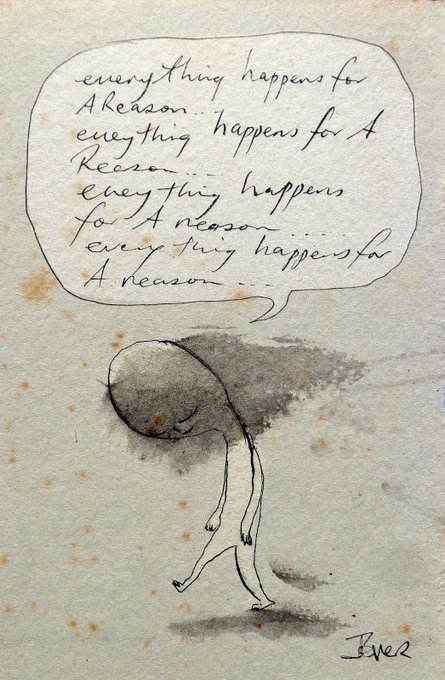 everything happens for
A Reason....
eveything happens for A
Reason....
everything happens
for A reason.....
everything happens for
A reason...